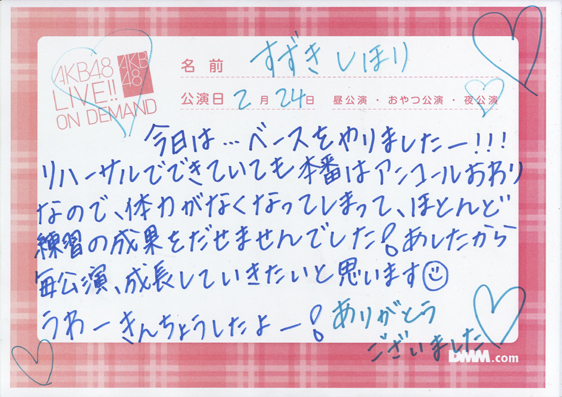 AKB48
LIVE!!
ON DEMAND
AKB
48
名前 すずきしほり
公演日 2月24日 昼公演・おやつ公演・夜公演
今日は…ベースをやりましたー!!!
リハーサルでできていても本番はアンコールおわり
なので、体力がなくなってしまって、ほとんど
練習の成果をだせませんでした!あしたから
毎公演、成長していきたいと思います☺
うわーきんちょうしたよー!ありがとう
ございました
DMM.com